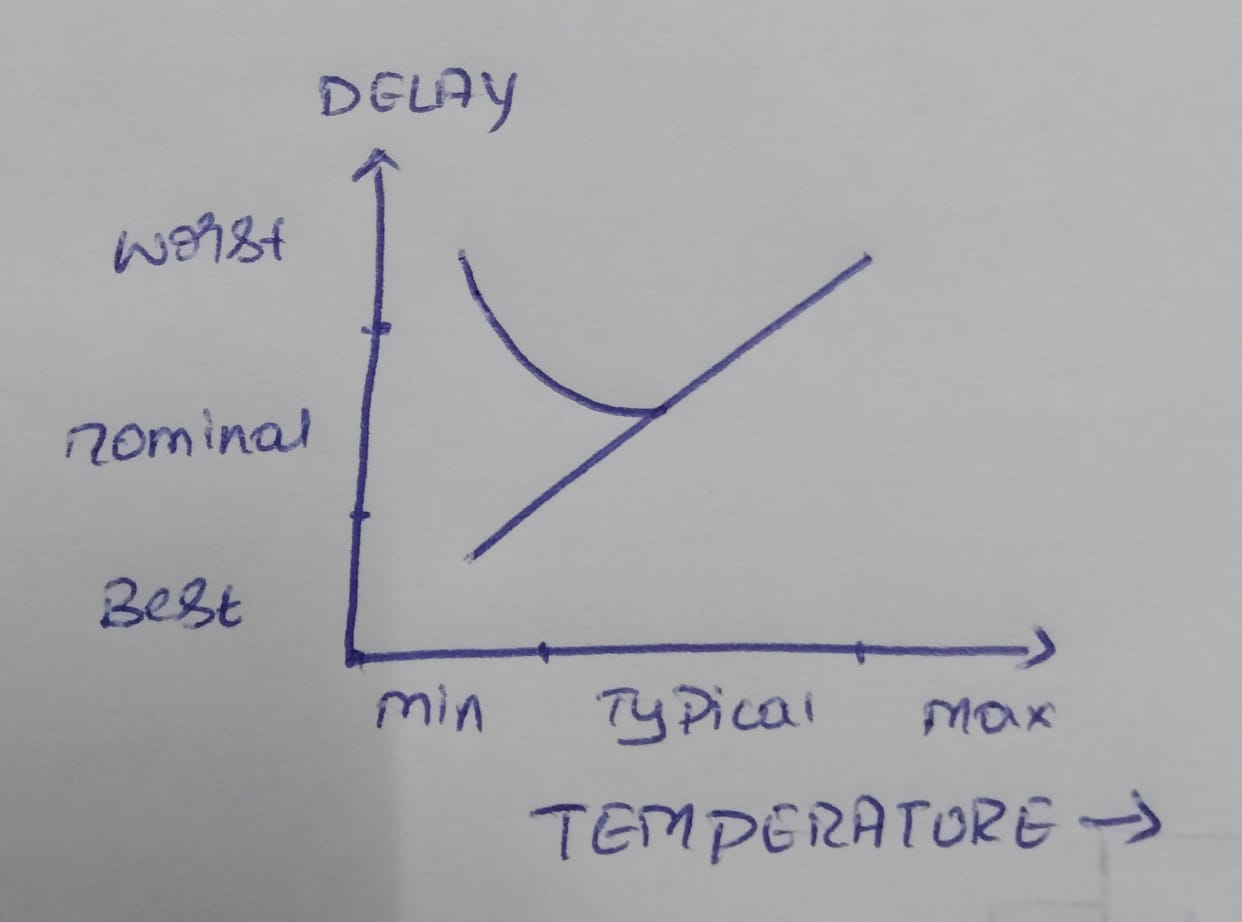 DELAY
worst
nominal
Best
min Typical max
TEMPERATURE →